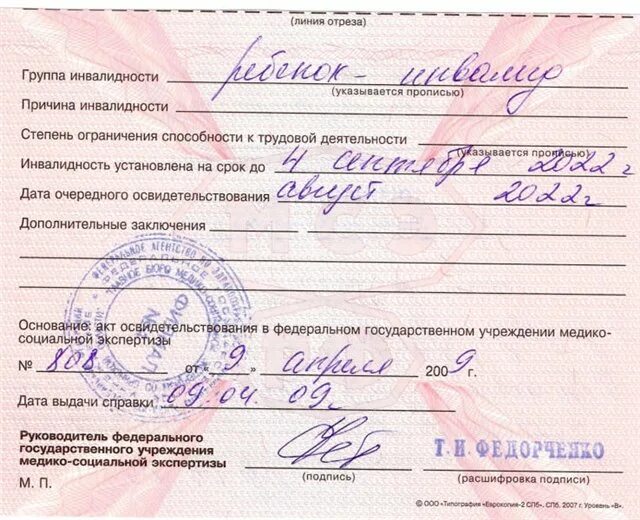 (линия отреза)
Группа инвалидности ребёнок - инвалид
(указывается прописью)
Причина инвалидности
Степень ограничения способности к трудовой деятельности
(указывается прописью)
Инвалидность установлена на срок до 4 сентября 2022 г
Дата очередного освидетельствования август 2022 г
Дополнительные заключения
МСЭ
ФЕДЕРАЛЬНОЕ АГЕНТСТВО ПО
ГЛАВНОЕ БЮРО МЕДИКО-
ФИЛИАЛ
Основание: акт освидетельствования в федеральном государственном учреждении медико-
социальной экспертизы
№ 808 от "9" апреля 2009 г.
Дата выдачи справки 09.04.09г.
Руководитель федерального
государственного учреждения
медико-социальной экспертизы
Т.И.ФЕДОРЧЕНКО
(подпись) (расшифровка подписи)
М. П.
© ООО «Типография «Еврокопия-2 СПб», СПб, 2007 г. Уровень «В».